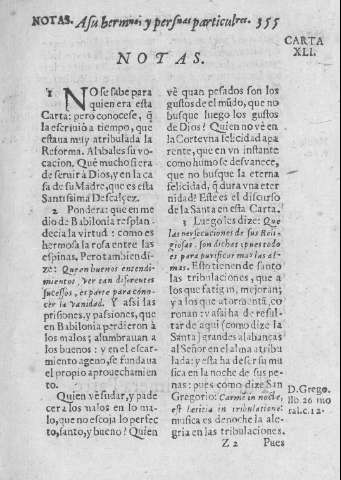 NOTAS. A su herman y personas particulares. 355
CARTA
XLI.
NOTAS.
1 NO se sabe para
quien era esta
Carta: pero conocese, q̃
la escriuiò a tiempo, que
estaua muy atribulada la
Reforma. Alabales su vo-
cacion. Què mucho si era
de seruir à Dios, y en la ca
sa de su Madre, que es esta
Santissima Descalçez.
2 Pondera: que en me
dio de Babilonia resplan-
decia la virtud: como es
hermosa la rosa entre las
espinas. Pero tambien di-
ze: Que a buenos entendi-
mientos, ver tan diferentes
sucessos, es parte para cono-
cer la vanidad. Y assi las
prisiones, y passiones, que
en Babilonia perdieron à
los malos, alumbrauan a
los buenos: y en el escar-
miento ageno, se fundaua
el propio aprouechamien-
to.
Quien vè sudar, y pade
cer a los malos en lo ma-
lo, que no escoja lo perfec
to, santo, y bueno? Quien
vè quan pesados son los
gustos de el mũdo, que no
busque luego los gustos
de Dios? Quien no vè en
la Corte vna felicidad apa
rente, que en vn instante
como humo se desvanece,
que no busque la eterna
felicidad, q̃ dura vna eter-
nidad? Este es el discurso
de la Santa en esta Carta.
3 Luego dize: Que
las persecuciones de sus Reli-
giosas. son dichas, pues todo
es para purificar mas las al-
mas. Esto tienen de santo
las tribulaciones, que a
los que fatigan, mejoran;
y a los que atormentã, co
ronan: y assi ha de resul-
tar de aquì (como dize la
Santa) grandes alabanças
al Señor en el alma atribu
lada: y esta ha de ser su mu
sica en la noche de sus pe-
nas: pues como dize San
Gregorio: Carmẽ in nocte,
est lætitia in tribulatione:
musica es de noche la ale-
gria en las tribulaciones.
D. Grego.
lib. 26 mo
ral. c. 12.
Z 2 Pues